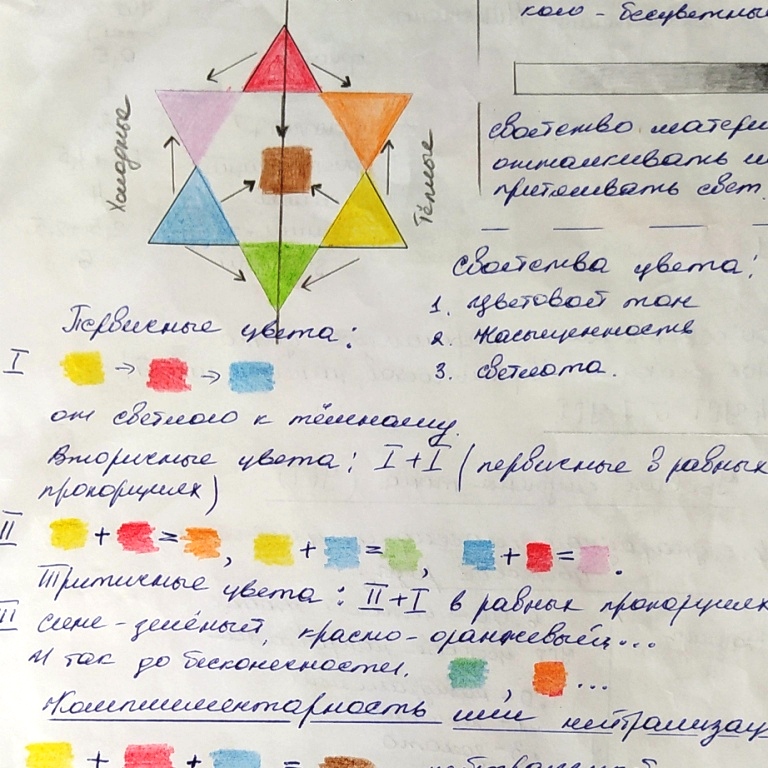 Холодные
Тёплые
бесцветны
свойство матери
отталкивать и
притягивать свет.
Свойства цвета:
1. цветовой тон
2. насыщенность
3. светлота.
Первичные цвета:
I → →
от светлого к тёмному.
Вторичные цвета: I + I (первичные в равных
пропорциях)
II + = , + = , + = .
Третичные цвета: II + I в равных пропорциях
III сине-зелёный, красно-оранжевый...
И так до бесконечности. , ...
Комплиментарность или нейтрализац
+ + =